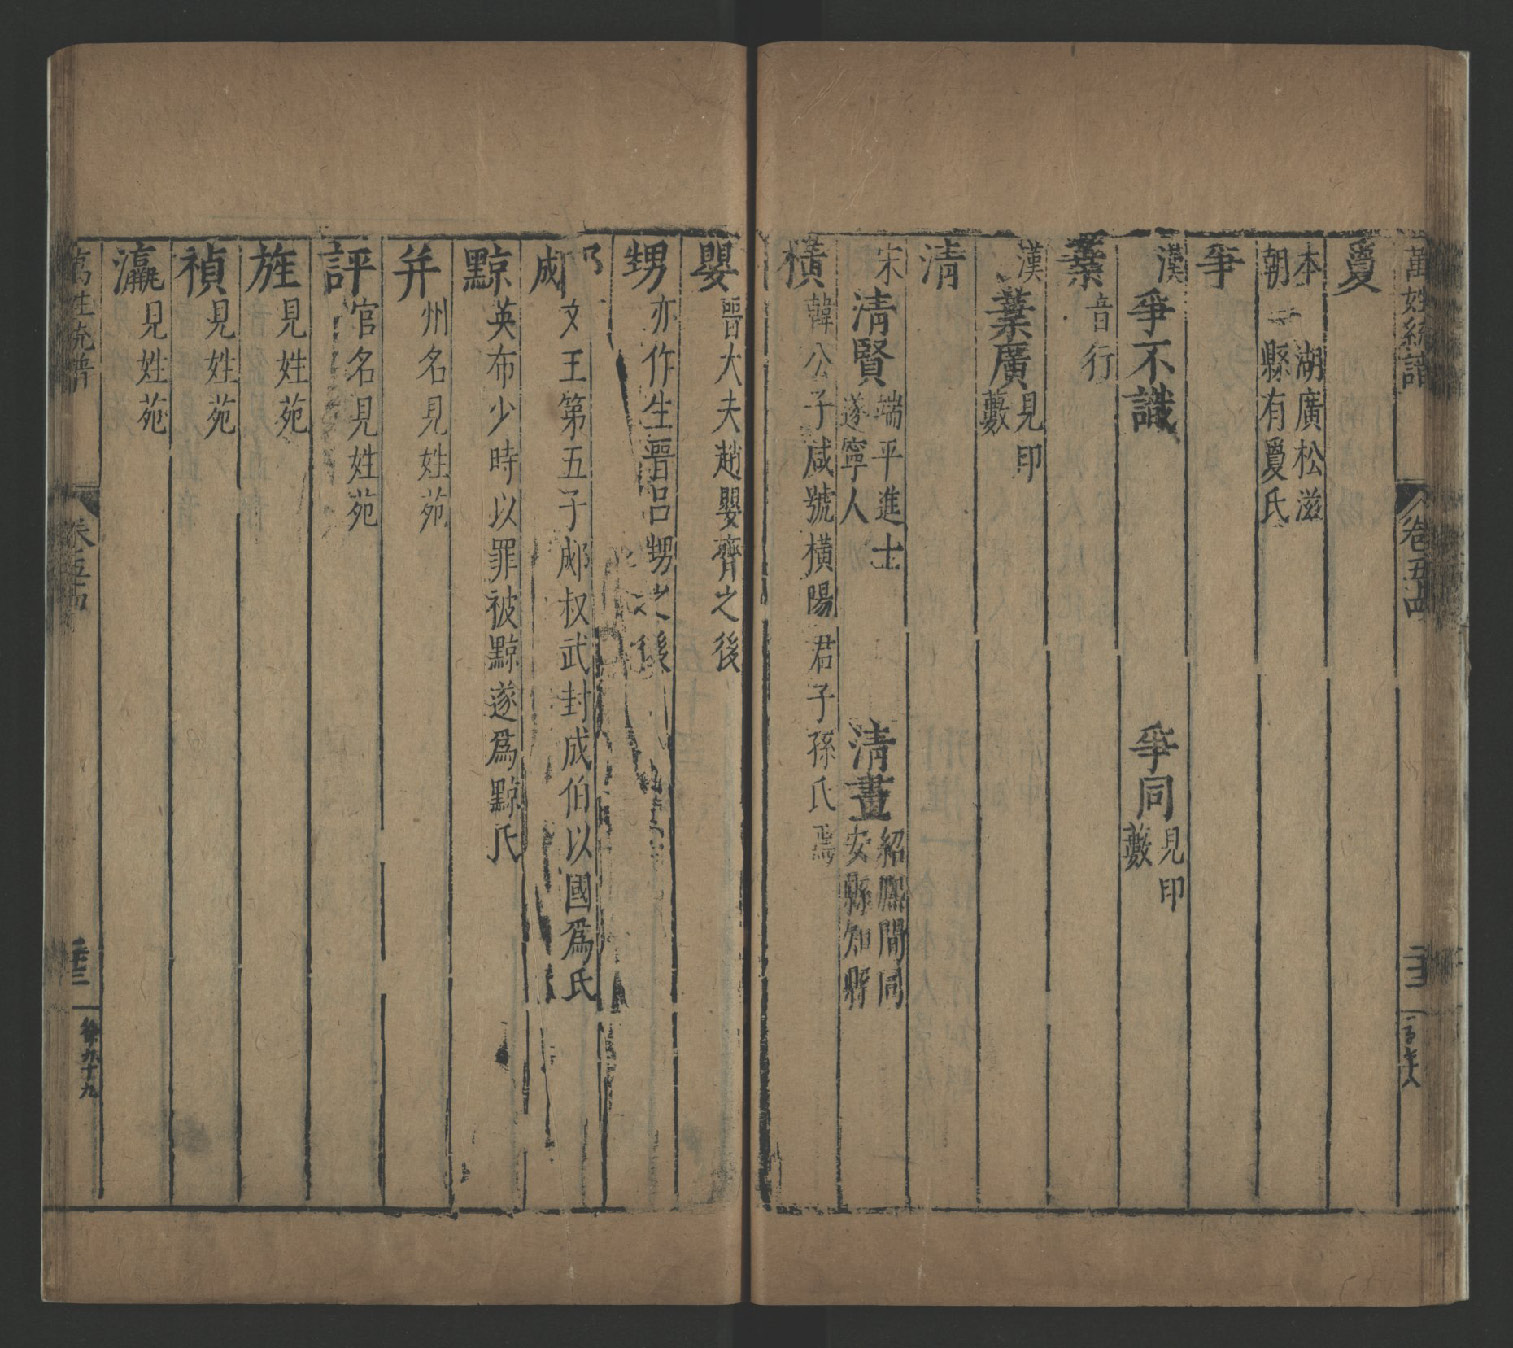 萬姓統譜 卷五十四
夐
本朝 湖廣松滋縣有夐氏
爭
漢 爭不識 爭同 見印藪
葉 音行
漢 葉廣 見印藪
清
宋 清賢 端平進士遂寧人 清晝 紹熙間同安縣知縣
橫 韓公子咸號橫陽君子孫氏焉
嬰 晉大夫趙嬰齊之後
甥 亦作生晉呂甥之後
郕 文王第五子郕叔武封成伯以國爲氏
黥 英布少時以罪被黥遂爲黥氏
并 州名見姓苑
評 官名見姓苑
旌 見姓苑
禎 見姓苑
瀛 見姓苑
萬姓統譜 卷五十四 徐九十九